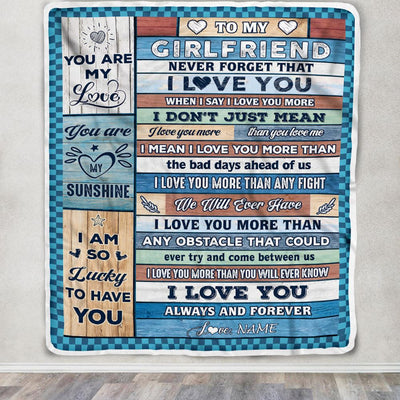 YOU ARE
MY
Love
You are
MY
SUNSHINE
I AM
SO
Lucky
TO HAVE
YOU
TO MY
GIRLFRIEND
NEVER FORGET THAT
I LOVE YOU
WHEN I SAY I LOVE YOU MORE
I DON'T JUST MEAN
I love you more than you love me
I MEAN I LOVE YOU MORE THAN
the bad days ahead of us
I LOVE YOU MORE THAN ANY FIGHT
We Will Ever Have
I LOVE YOU MORE THAN
ANY OBSTACLE THAT COULD
ever try and come between us
I LOVE YOU MORE THAN YOU WILL EVER KNOW
I LOVE YOU
ALWAYS AND FOREVER
Love, NAME